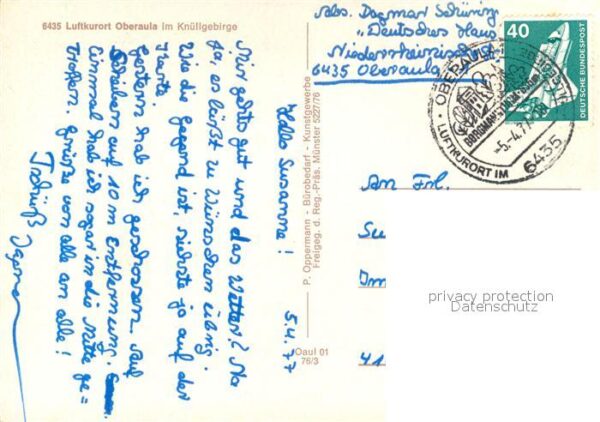 6435 Luftkurort Oberaula im Knüllgebirge
Abs. Dagmar
"Deutsches Haus
6435 Oberaula
40
DEUTSCHE BUNDESPOST
OBERAULA
BORGMANNSTURM
-5.-4.77-
LUFTKURORT IM
6435
5.4.77
Hallo Susanne!
Mir geht's gut und das Wetter? Na
ja, es läßt zu Wünschen übrig.
Wie die Gegend ist, siehste ja auf der
Karte.
Gestern hab ich geschossen. Auf
Scheiben auf 10m Entfernung.
Einmal hab ich sogar in die Mitte ge=
troffen. Grüße von alle an alle!
Tschüß Dagmar
P. Oppermann - Bürobedarf - Kunstgewerbe
Freigeg. d. Reg.-Präs. Münster 5227/76
Oaul 01
76/3
An Frl.
Su
Im
41
privacy protection
Datenschutz